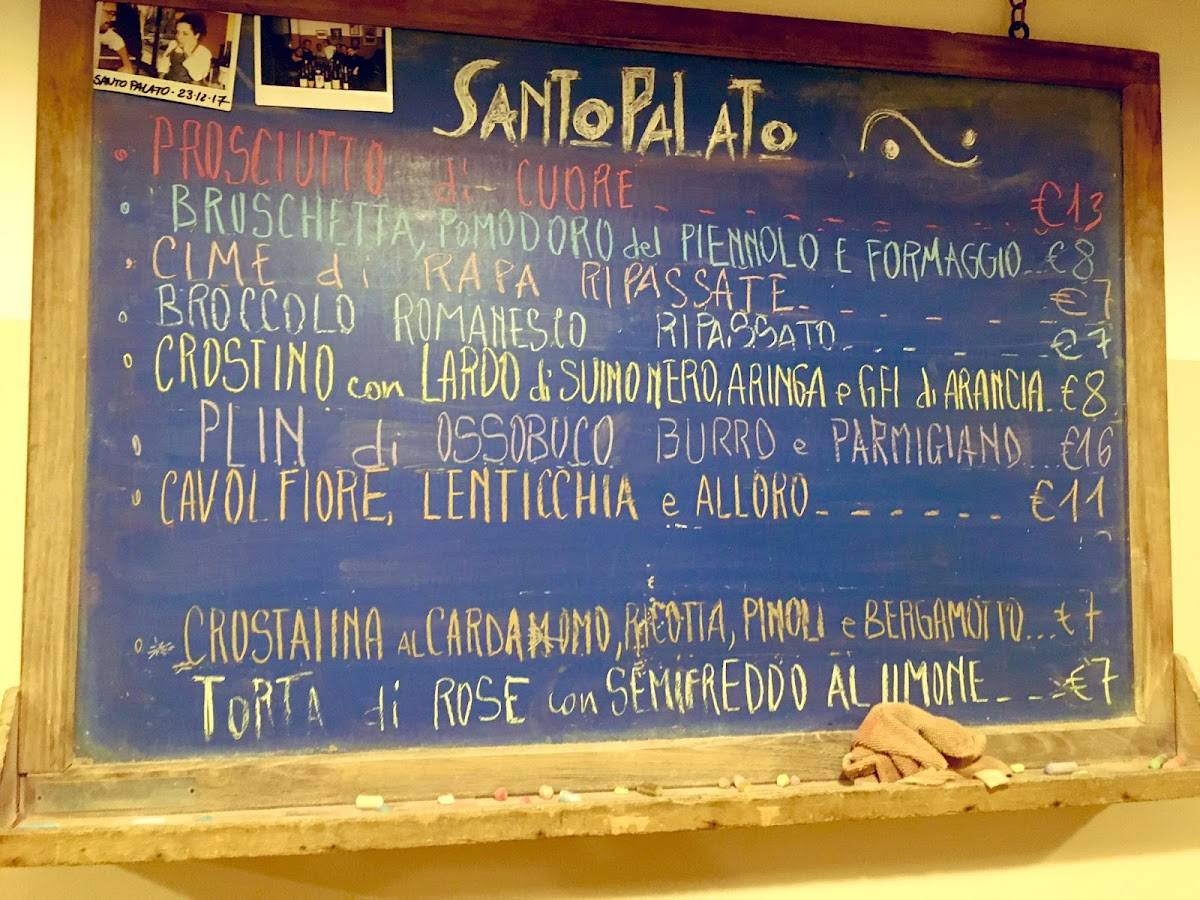 SANTO PALATO - 23-12-17
SANTO PALATO
PROSCIUTTO di CUORE _ _ _ _ _ _ _ _ _ . . . €13
BRUSCHETTA, POMODORO del PIENNOLO E FORMAGGIO...€8
CIME di RAPA RIPASSATE_ _ _ _ _ _ _ _ €7
BROCCOLO ROMANESCO RIPASSATO_ _ _ _ _ _ €7
CROSTINO con LARDO di SUINO NERO, ARINGA e GEL di ARANCIA..€8
PLIN di OSSOBUCO BURRO e PARMIGIANO...€16
CAVOLFIORE, LENTICCHIA e ALLORO_ _ _ _ _ _ €11
CROSTATINA AL CARDAMOMO, RICOTTA, PINOLI e BERGAMOTTO...€7
TORTA di ROSE con SEMIFREDDO AL LIMONE_ _ _ €7